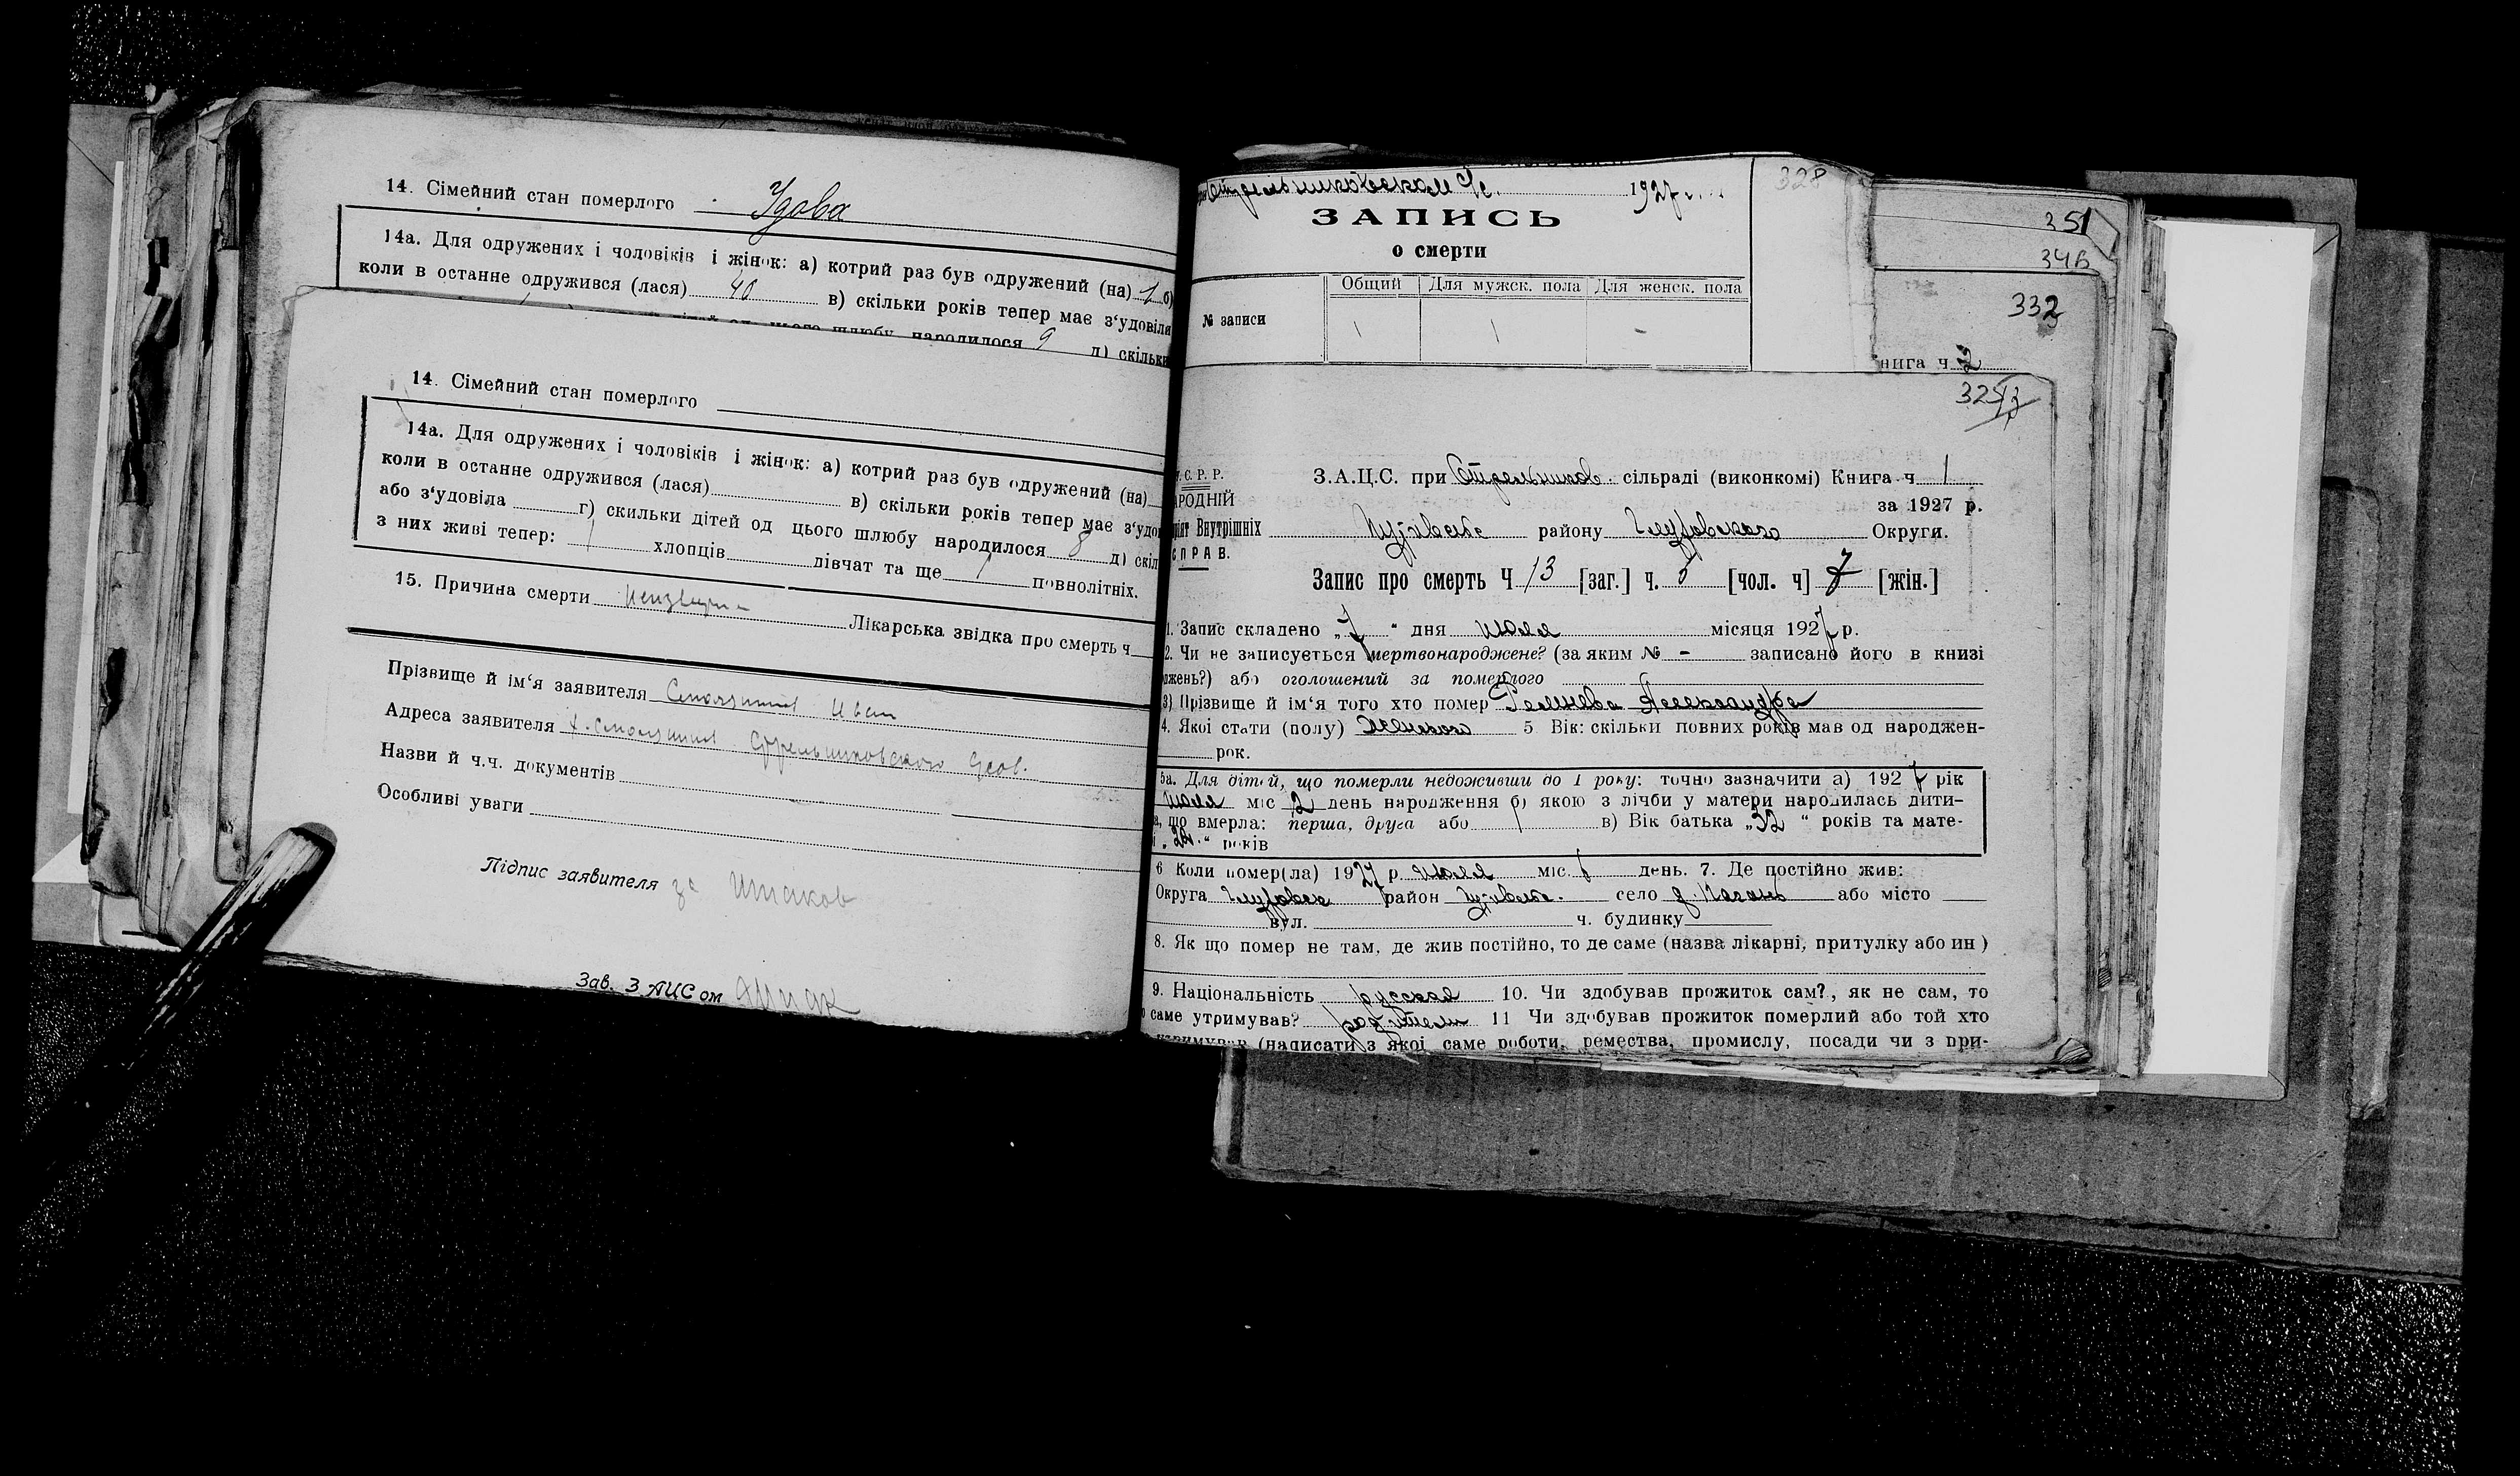 14. Сімейний стан померлого Удова
14а. Для одружених і чоловіків і жінок: а) котрий раз був одружений (на) 1 б)
коли в останне одружився (лася) 40 в) скільки років тепер має з'удовіли
шлюбу народилося 9 д) скільки
14. Сімейний стан померлого
14а. Для одружених і чоловіків і жінок: а) котрий раз був одружений (на)
коли в останне одружився (лася) в) скільки років тепер має з'удов
або з'удовіла г) скильки дітей од цього шлюбу народилося 8 д) скіл
з них живі тепер: 1 хлопців дівчат та ще 1 повнолітніх.
15. Причина смерти Лікарська звідка про смерть ч
Прізвище й ім'я заявителя Иван
Адреса заявителя Стрельниковского
Назви й ч.ч. документів
Особливі уваги
Підпис заявителя за
Зав. ЗАЦСом
Стрельниковском С/с. 1927 г.
328
ЗАПИСЬ
о смерти
Общий Для мужск. пола Для женск. пола
№ записи 1 1 -
351
332
нига ч. 2
.С.Р.Р. З.А.Ц.С. при Стрельников. сільраді (виконкомі) Книга ч 1
РОДНІЙ за 1927 р.
Внутрішніх Путивльск району Глуховского Округи.
СПРАВ.
Запис про смерть Ч 13 [заг.] ч. [чол. ч] 7 [жін.]
1. Запис складено „7“ дня июля місяця 1927 р.
2. Чи не записується мертвонароджене? (за яким № - записано його в книзі
ожень?) або оголошений за померлого
3) Прізвище й ім'я того хто помер Александра
4. Якої стати (полу) Женского 5 Вік: скільки повних років мав од народжен-
рок.
5а. Для дітей, що померли недоживши до 1 року: точно зазначити а) 1927 рік
июля міс 2 день народження б) якою з лічби у матери народилась дити-
а, що вмерла: перша, друга або в) Вік батька „32“ років та мате-
років
6 Коли помер(ла) 1927 р. июля міс. день. 7. Де постійно жив:
Округа Глуховск район Путивльск. село або місто
вул. ч. будинку
8. Як що помер не там, де жив постійно, то де саме (назва лікарні, притулку або ин )
9. Національність русская 10. Чи здобував прожиток сам?, як не сам, то
саме утримував? родители 11 Чи здобував прожиток померлий або той хто
утримував (написати з якої саме роботи, ремества, промислу, посади чи з при-